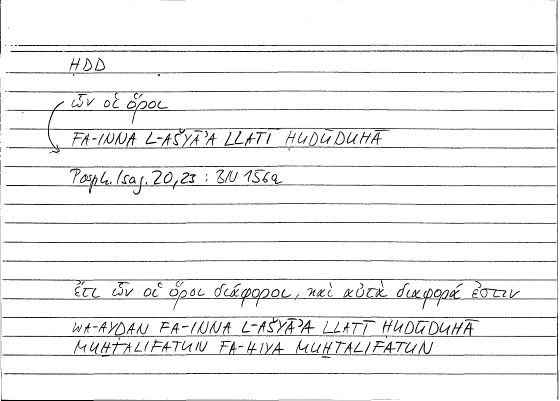 HDD
ὧν οἱ ὅροι
FA-INNA L-AŠYĀʾA LLATĪ HUDŪDUHĀ
Porph. Isag. 20,23 : BN 156a
ἔτι ὧν οἱ ὅροι διάφοροι, καὶ αὐτὰ διαφορά ἐστιν
WA-AYḌAN FA-INNA L-AŠYĀʾA LLATĪ HUDŪDUHĀ
MUẖTALIFATUN FA-HIYA MUẖTALIFATUN